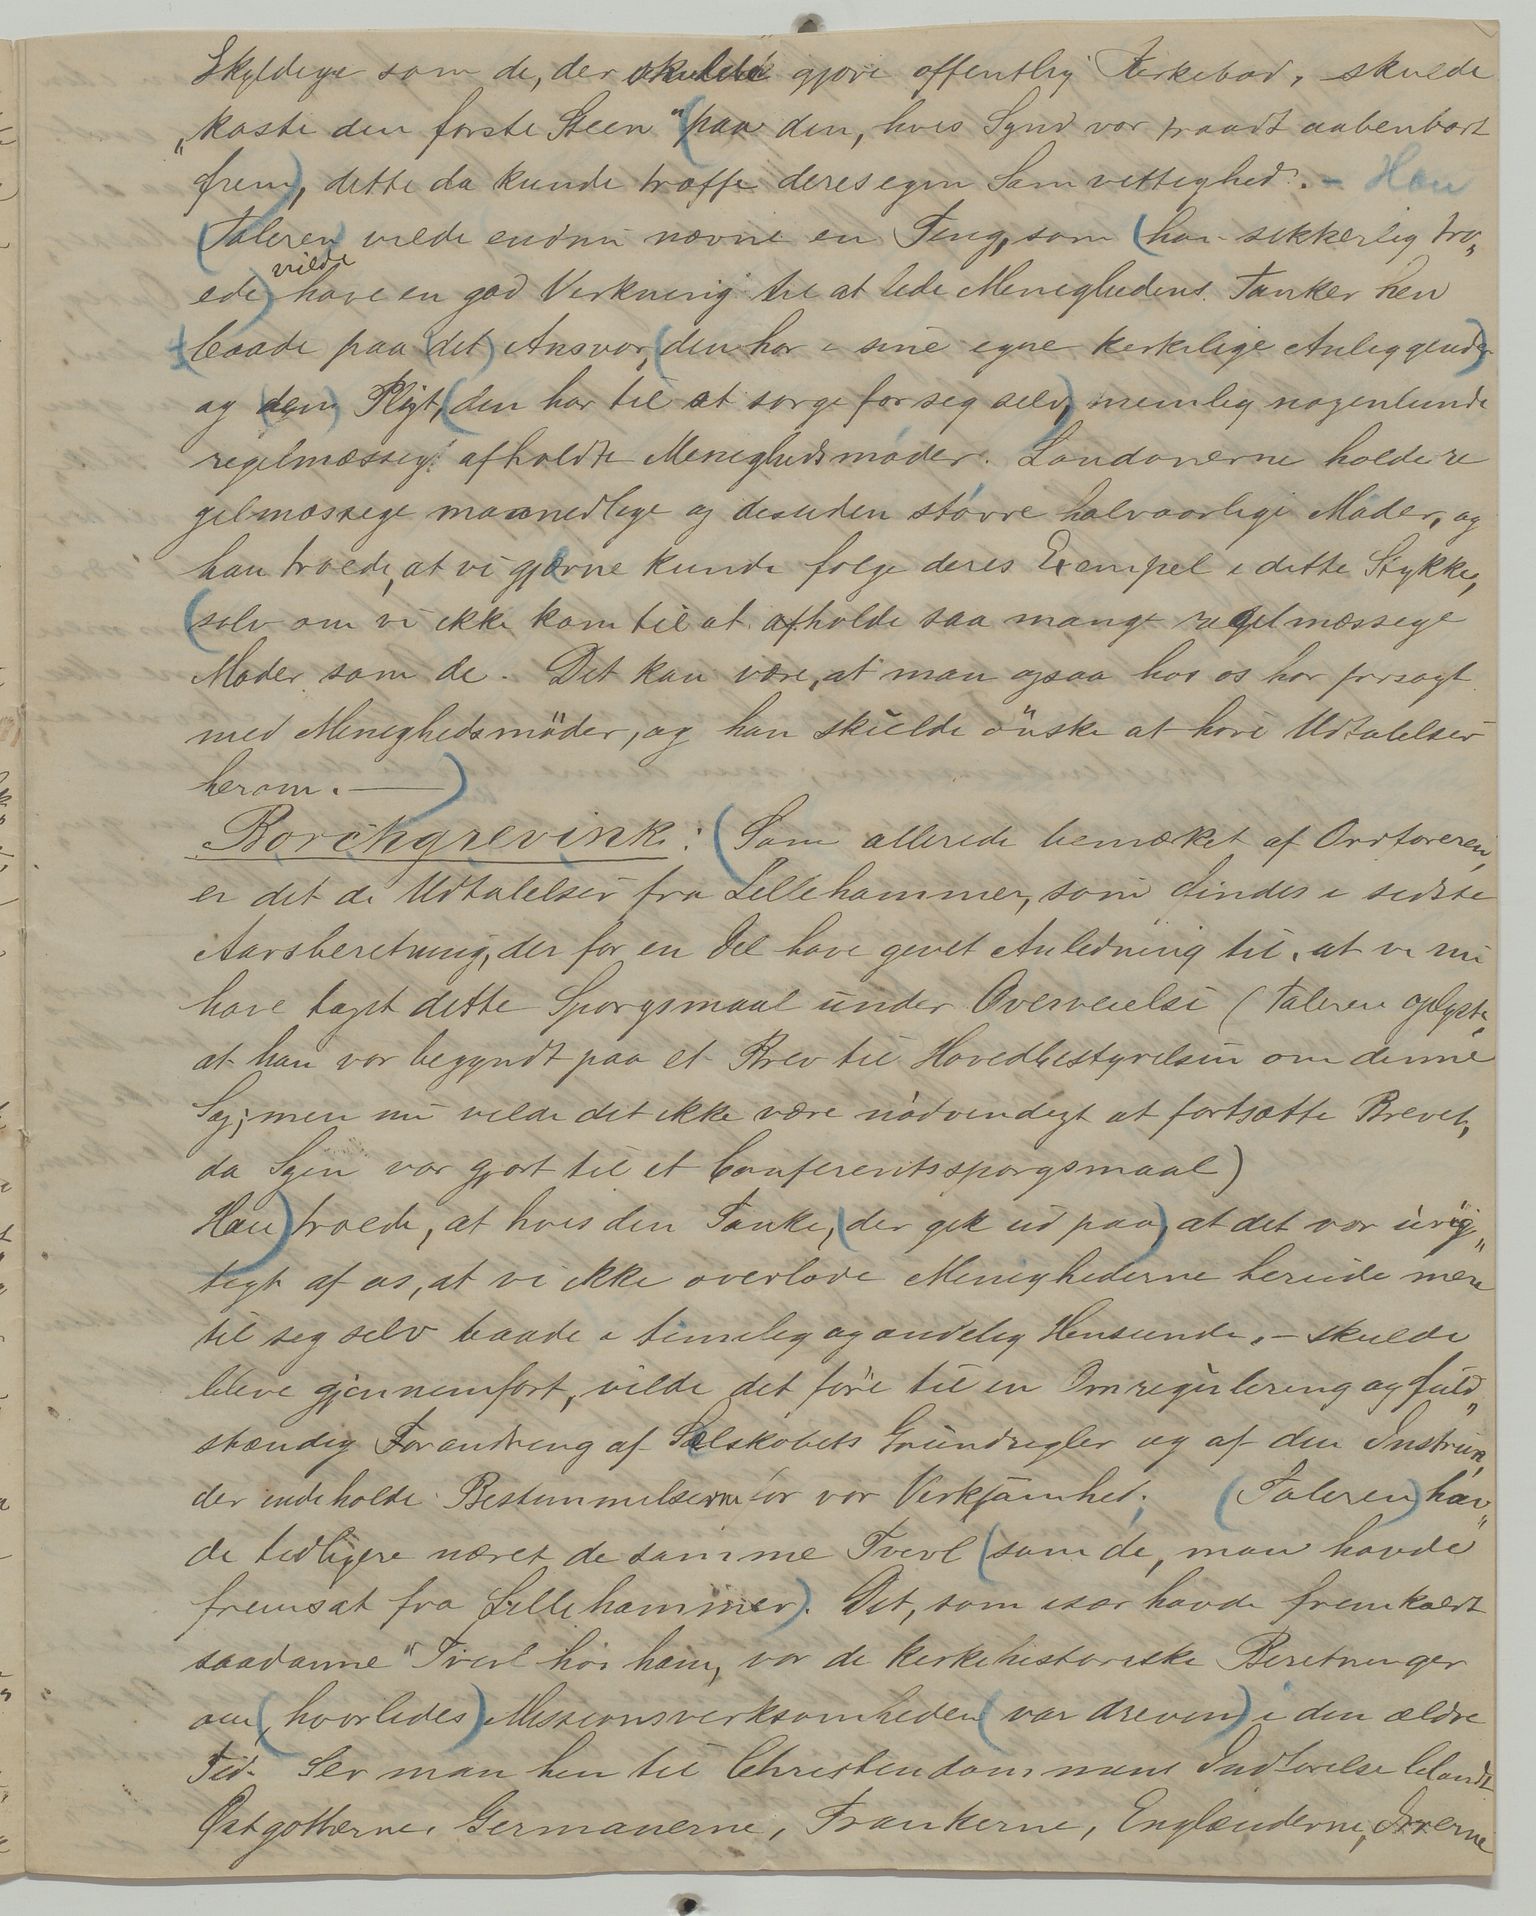 Skyldige som de, der skulde gjøre offentlig Kirkebod, skulde
„kaste den første Steen" (paa den, hvis Synd var traadt aabenbart
frem), dette da kunde træffe deres egen Samvittighed. – Han
(Taleren) vilde endnu nævne en Ting, som (han sikkerlig tro„
ede) vilde have en god Virkning til at lede Menighedens Tanker hen
(baade paa (det) Ansvar, (den har i sine egne kirkelige Anliggender)
og (den) Pligt, (den har til at sørge for sig selv), nemlig nogenlunde
regelmæssig afholdte Menighedsmøder. Londonerne holde re
gelmæssige maanedlige og desuden større halvaarlige Møder, og
han troede, at vi gjerne kunde følge deres Exempel i dette Stykke,
(selv om vi ikke kom til at afholde saa mange regelmæssige
Møder som de. Det kan være, at man ogsaa hos os har forsøgt
med Menighedsmöder, og han skulde önske at høre Udtalelser
herom. —)
Borchgrevink: (Som allerede bemærket af Ordføreren,
er det de Udtalelser fra Lillehammer, som findes i sidste
Aarsberetning, der for en Del have givet Anledning til, at vi nu
have taget dette Spørgsmaal under Overveielse (Taleren oplyste,
at han var begyndt paa et Brev til Hovedbestyrelsen om denne
Sag; men nu vilde det ikke være nödvendigt at fortsætte Brevet,
da Sagen var gjort til et Conferentsspørgsmaal)
Han) troede, at hvis den Tanke, (der gik ud paa), at det var urig„
tigt af os, at vi ikke overlode Menighederne herude mere
til sig selv baade i timelig og aandelig Henseende, – skulde
blive gjennemført, vilde det føre til en Omregulering og fuld„
stændig Forandring af Selskabets Grundregler og af den Instrux,
der indeholde Bestemmelserne for vor Virksamhed. (Taleren) hav„
de tidligere næret de samme Tvivl (som de, man havde
fremsat fra Lillehammer). Det, som især havde fremkaldt
saadanne Tvivl hos ham, var de kirkehistoriske Beretninger
om (hvorledes) Missionsvirksomheden (var dreven) i den ældre
Tid. Ser man hen til Christendommens Indførelse blandt
Østgotherne, Germanerne, Frankerne, Englænderne, Irerne